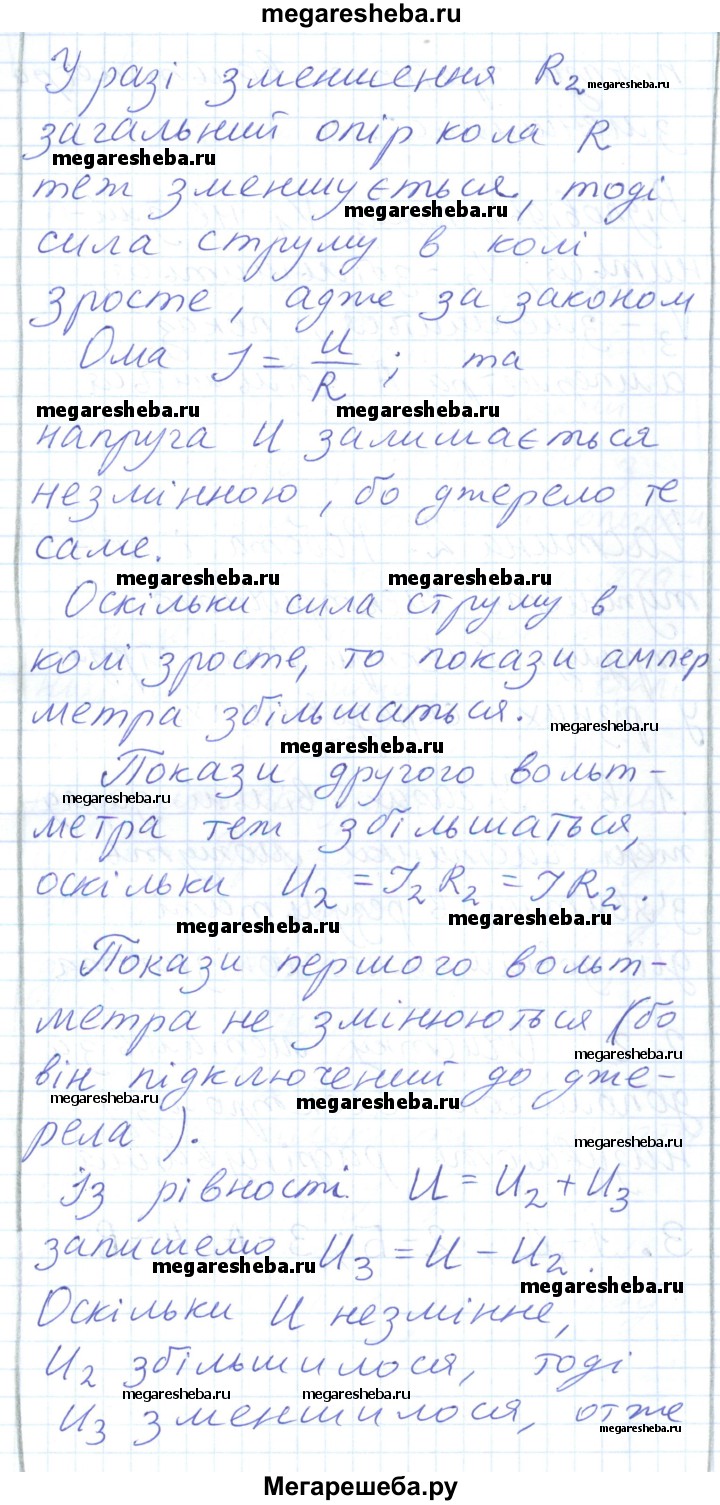 megaresheba.ru
У разі зменшення R₂ megaresheba.ru
загальний опір кола R
megaresheba.ru
теж зменшується, тоді
megaresheba.ru
сила струму в колі
зросте, адже за законом
Ома I = U/R ; та
megaresheba.ru megaresheba.ru
напруга U залишається
незмінною, бо джерело те
саме.
megaresheba.ru megaresheba.ru
Оскільки сила струму в
колі зросте, то покази ампер
метра збільшаться.
megaresheba.ru
megaresheba.ru
Покази другого вольт-
megaresheba.ru
метра теж збільшаться,
оскільки U₂ = I₂R₂ = IR₂.
megaresheba.ru megaresheba.ru
Покази першого вольт-
метра не змінюються (бо
megaresheba.ru
він підключений до дже-
megaresheba.ru megaresheba.ru
рела).
megaresheba.ru
Із рівності U = U₂ + U₃
запишемо U₃ = U - U₂.
megaresheba.ru
megaresheba.ru
Оскільки U незмінне,
U₂ збільшилося, тоді
megaresheba.ru megaresheba.ru
U₃ зменшилося, отже
megaresheba.ru
Мегарешеба.ру